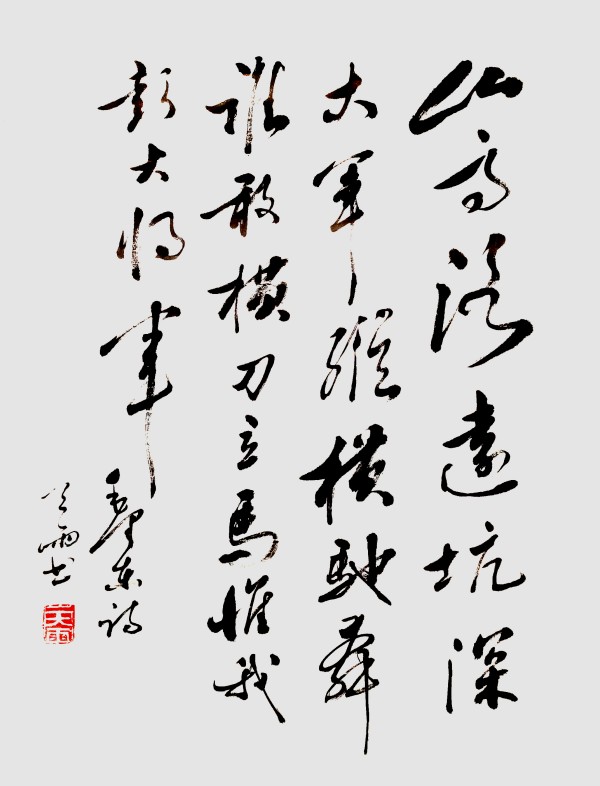 山高路遠坑深
大軍縱橫馳奔
誰敢橫刀立馬惟我
彭大將軍
毛澤東詩
天雨书
天雨